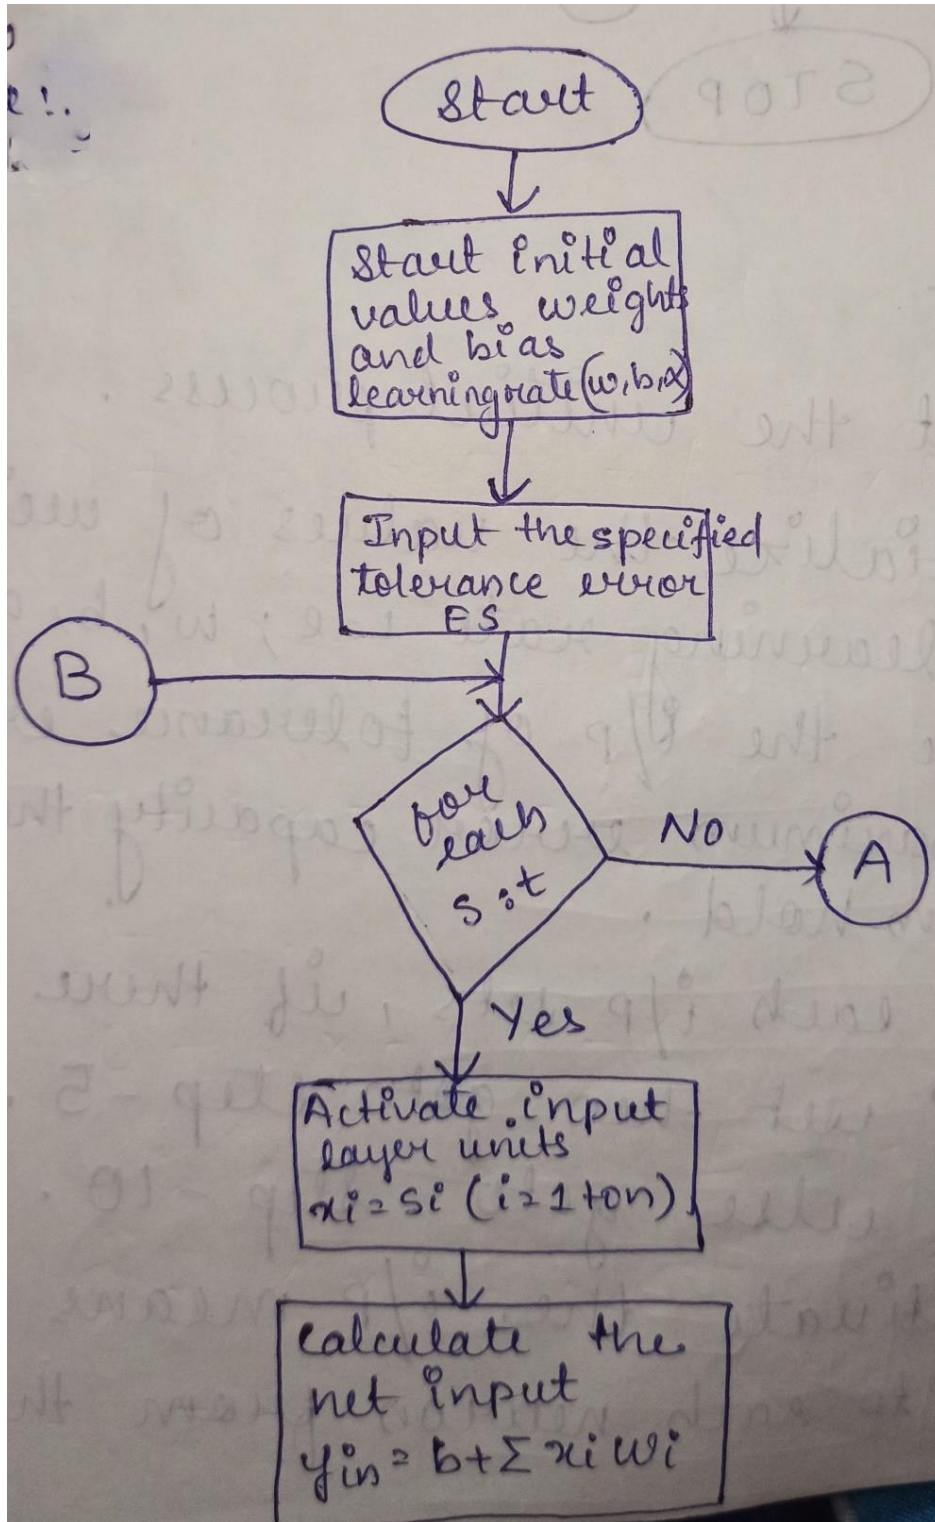 Start
Start initial
values weights
and bias
learningrate (w,b,α)
Input the specified
tolerance error
ES
B
for
each
s:t
No
A
Yes
Activate input
layer units
xi = si (i=1 to n)
Calculate the
net input
yin = b+Σ xi wi